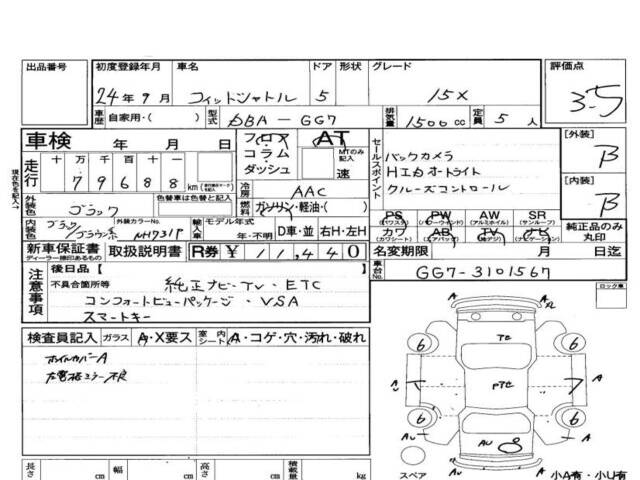 出品番号 初度登録年月 車名 ドア 形状 グレード 評価点
24年9月 フィットシャトル 5 15X 3.5
車歴 自家用・( ) 型式 DBA-GG7 排気量 1500cc 定員 5人
車検 年 月 日 フロア AT
[外装] B
コラム MTのみ記入
ダッシュ 速
走行 十万千百十 79688 km
セールスポイント
バックカメラ
HIDオートライト
クルーズコントロール
[内装] B
現在色を記入
外装色 ブラック 色替車は色替と記入
冷房 AAC
燃料 ガソリン・軽油・( )
内装色 ブラック/ブラウン系 外装カラーNo. NH731P
輸入車 モデル年式 年・不明 D車・並 右H・左H
PS (パワステ) PW (パワーウインド) AW (アルミホイル) SR (サンルーフ)
カワ (カワシート) AB (エアバッグ) TV (地デジ) ナビ (ナビゲーション)
純正品のみ丸印
新車保証書 ディーラー捺印あるもの 取扱説明書 R券 ¥ 11,440
名変期限 月 日迄
車台No. GG7-3101567
注意事項
後日品 [ ]
不具合箇所等 純正ナビ・TV・ETC
コンフォートビューパッケージ・VSA
スマートキー
ロック車
検査員記入 ガラス A・X要ス 室内シート A・コゲ・穴・汚れ・破れ
ホイルカバーA
左電格ミラー不良
A A XL
6 TC 6
A PTC A
6 6
AU AU AU A
スペア
A A
小A有・小U有
長さ cm 幅 cm 高さ cm 積載量 kg